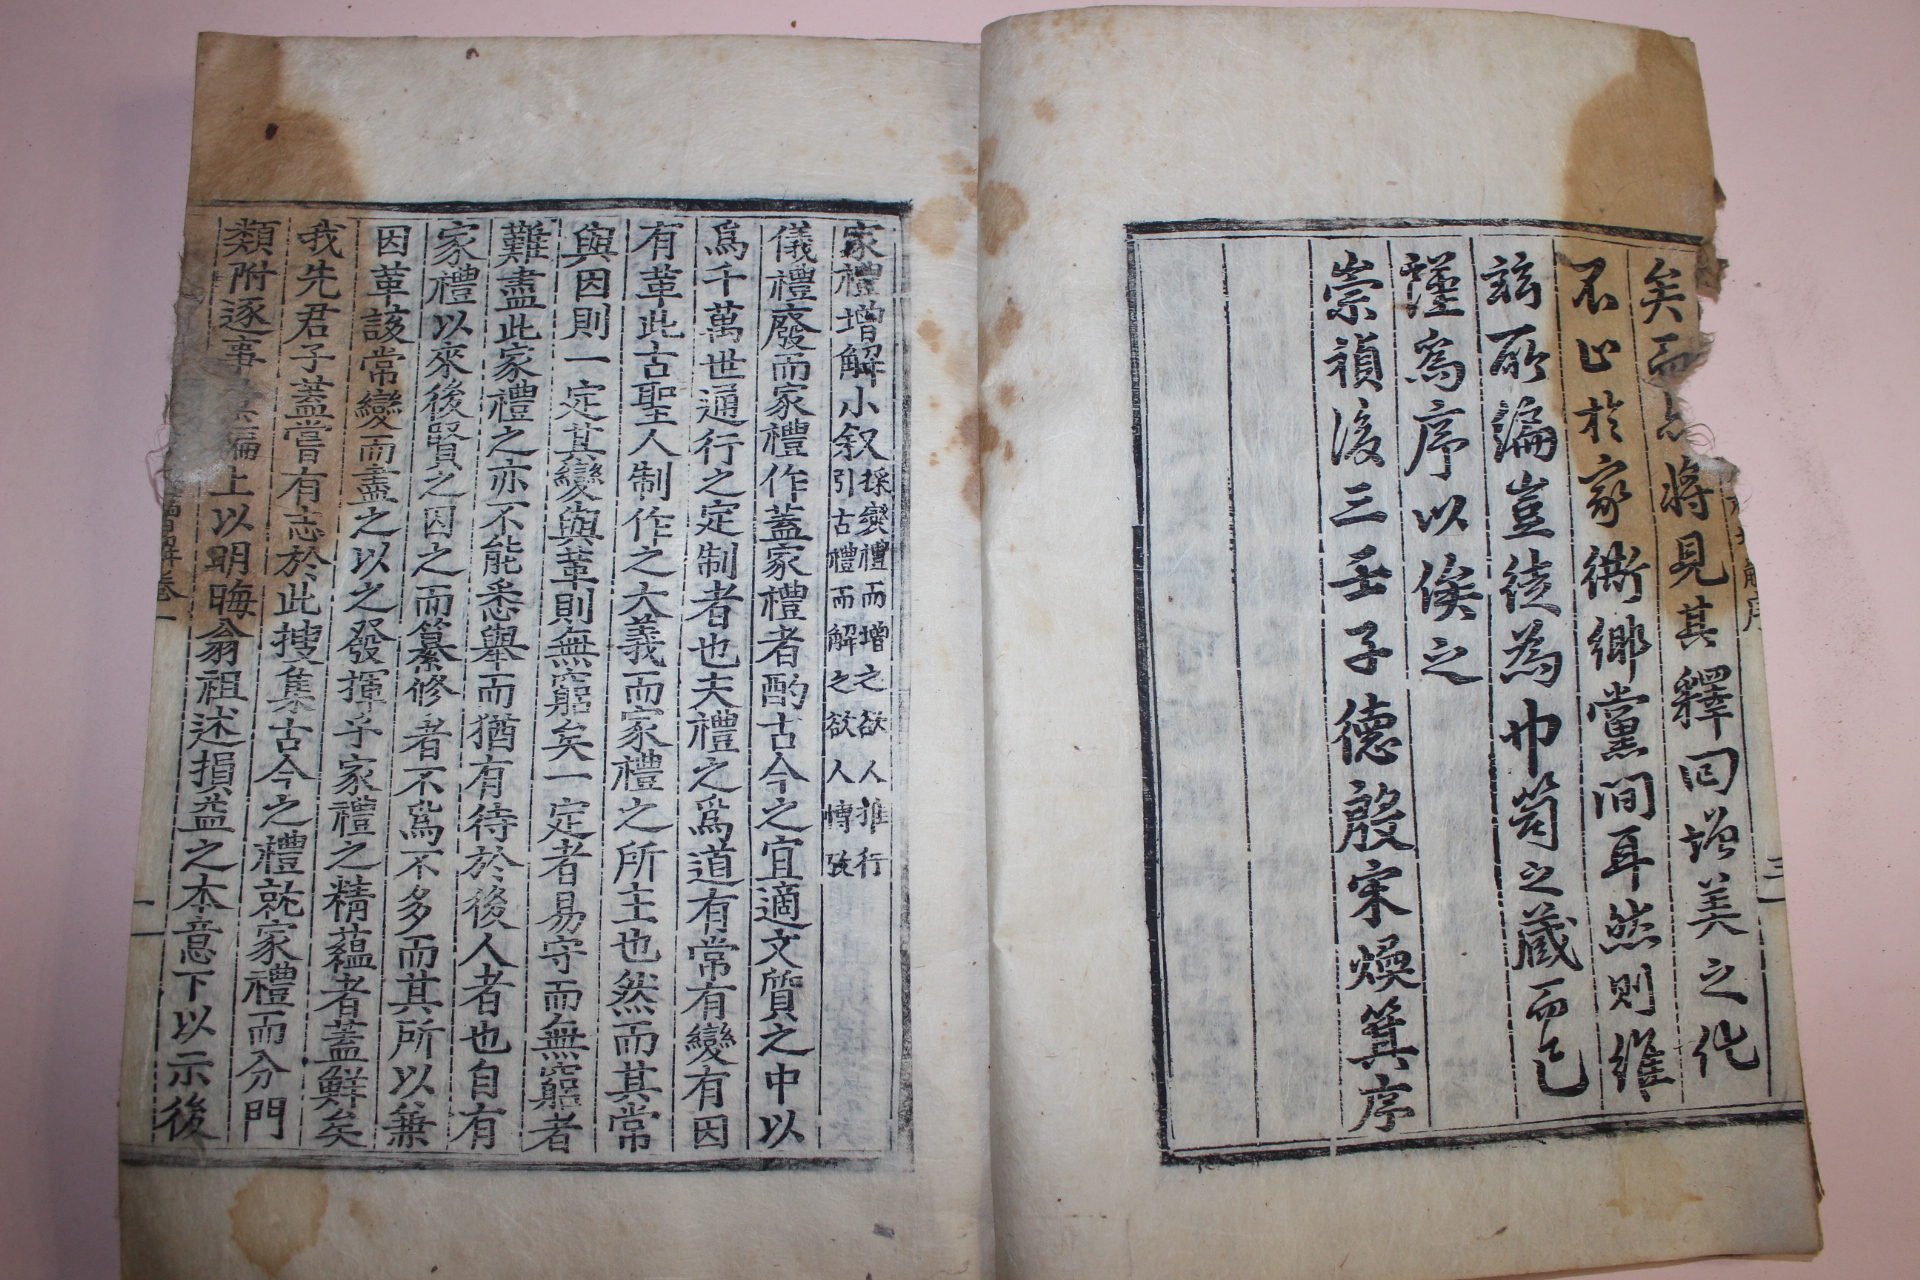 矣而
將見其釋回增美之化
不止於家衖鄉黨間耳然則維
玆所論豈徒為巾笥之藏而已
謹爲序以俟之
崇禎後三壬子德殷宋煥箕序
三
家禮增解小叙
採變禮而增之欲人推行
引古禮而解之欲人博攷
儀禮廢而家禮作蓋家禮者酌古今之宜適文質之中以
爲千萬世通行之定制者也夫禮之爲道有常有變有因
有革此古聖人制作之大義而家禮之所主也然而其常
與因則一定其變與革則無窮矣一定者易守而無窮者
難盡此家禮之亦不能悉舉而猶有待於後人者也自有
家禮以來後賢之因之而纂修者不爲不多而其所以兼
因革該常變而盡之以之發揮乎家禮之精蘊者蓋鮮矣
我先君子蓋嘗有志於此搜集古今之禮就家禮而分門
類附逐事編上以明晦翁祖述損益之本意下以示後
增解卷一
一